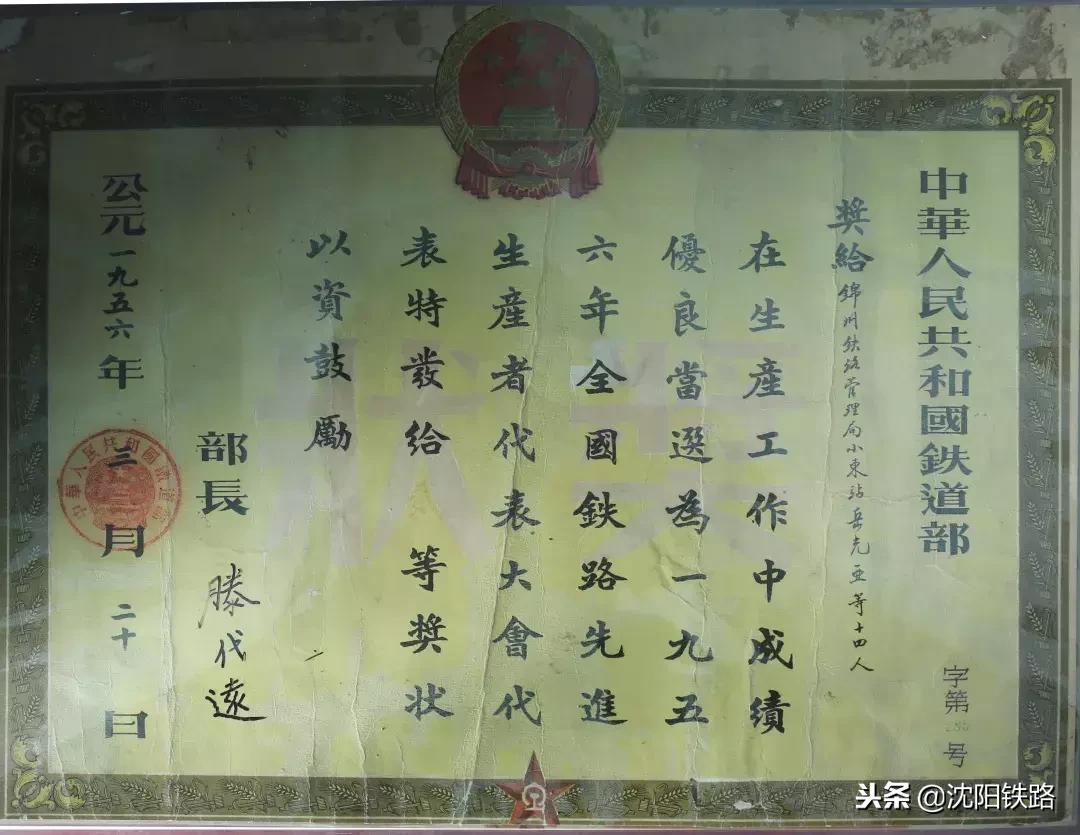 中華人民共和國鉄道部
字第 號
奬給錦州鉄路管理局小東站岳先亚等十四人
在生産工作中成績
優良當選為一九五
六年全國鉄路先進
生産者代表大會代
表特發給 等奨状
以資鼓勵
部長 滕代遠
公元一九五六年三月二十日
奬狀
中華人民共和國鐵道部
头条 @沈阳铁路